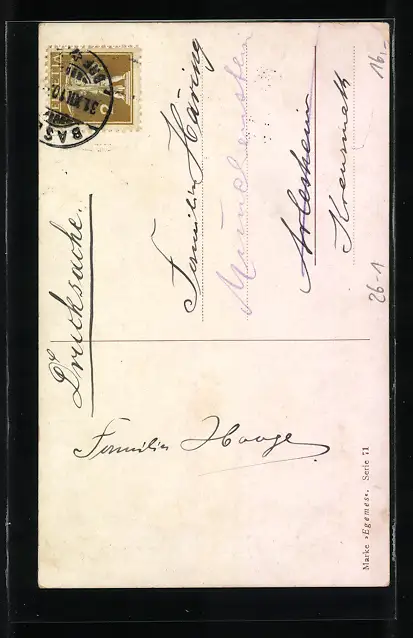 HELVETIA
BASEL
31.XII.10
Drucksache.
Familie Häring
Münchenstein
Arlesheim
16,-
26-1
Familie Hooge
Marke »Egemes«. Serie 71